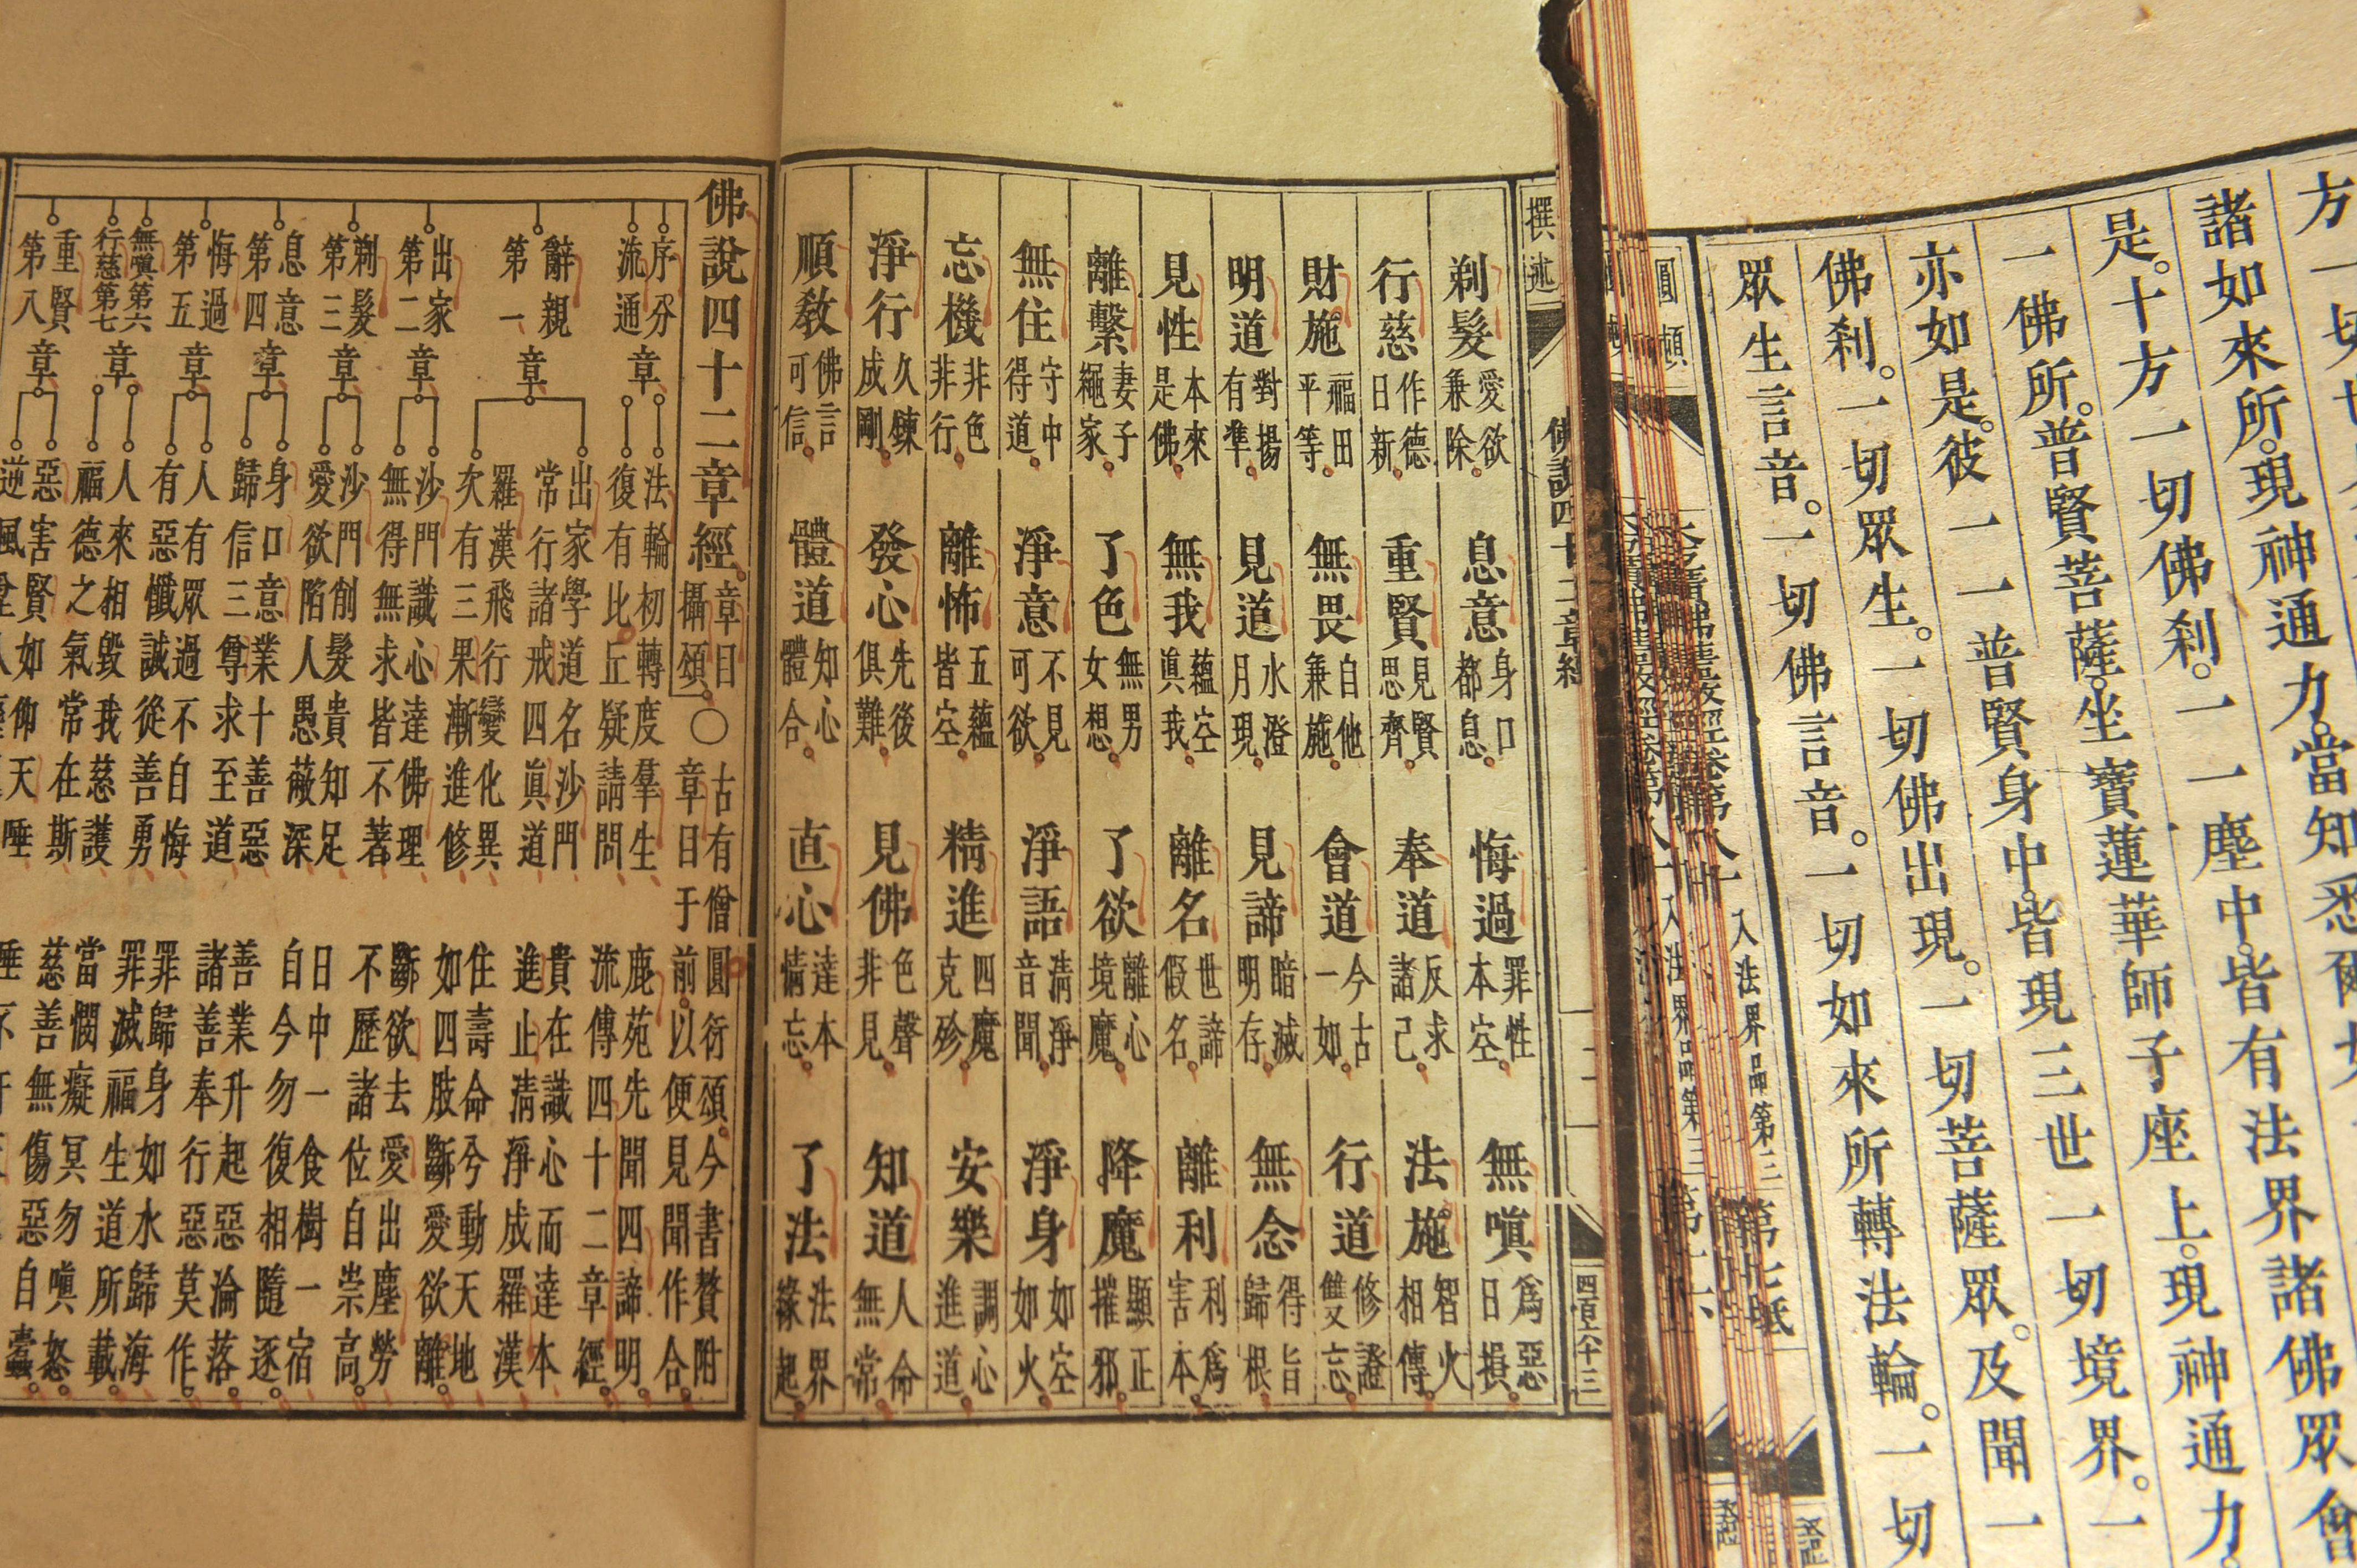 諸如來所。現神通力。當知悉爾
是。十方一切佛刹。一一塵中。皆有法界諸佛眾會
一佛所。普賢菩薩。坐寶蓮華師子座上。現神通力
亦如是。彼一一普賢身中。皆現三世一切境界。一
佛刹。一切眾生。一切佛出現。一切菩薩眾。及聞一
眾生言音。一切佛言音。一切如來所轉法輪。一切
入法界品第三
撰述 佛說四十二章經 四百六十三
剃髮 愛欲兼除。 息意 身口都息。 悔過 罪性本空。 無嗔 爲惡日損。
行慈 作德日新。 重賢 見賢思齊。 奉道 反求諸己。 法施 智火相傳。
財施 福田平等。 無畏 自他兼施。 會道 今古一如。 行道 修證雙忘。
明道 對揚有準。 見道 水澄月現。 見諦 暗滅明存。 無念 得旨歸根。
見性 本來是佛。 無我 蘊空眞我。 離名 世諦假名。 離利 利爲害本。
離繫 妻子繩家。 了色 無男女想。 了欲 離心境魔。 降魔 顯正摧邪。
無住 守中得道。 淨意 不見可欲。 淨語 清淨音聞。 淨身 如空如火。
忘機 非色非行。 離怖 五蘊皆空。 精進 四魔克殄。 安樂 調心進道。
淨行 久鍊成剛。 發心 先後俱難。 見佛 色聲非見。 知道 人命無常。
順教 佛言可信。 體道 知心體合。 直心 達本情忘。 了法 法界緣起。
佛說四十二章經。章曰攝頌。○古有僧圓衍頌。今書贊附
章曰于前。以便見聞作合。
序分流通章
法輪初轉度羣生 鹿苑先聞四諦明。
復有比丘疑請問 流傳四十二章經。
辭親第一章
出家學道名沙門 貴在識心而達本
常行諸戒四眞道 進止清淨成羅漢
羅漢飛行變化異 住壽命兮動天地。
次有三果漸進修 如四肢斷愛欲離。
出家第二章
沙門識心達佛理 斷欲去愛出塵勞。
無得無求皆不著 不歷諸位自崇高。
剃髮第三章
沙門剃髮貴知足 日中一食樹一宿。
愛欲陷人愚蔽深 自今勿復相隨逐。
息意第四章
身口意業十善惡 善業升起惡淪落。
歸信三尊求至道 諸善奉行惡莫作。
悔過第五章
人有眾過不自悔 罪歸身如水歸海。
有惡懺誠從善勇 罪滅福生道所載。
無嗔第六行慈第七章
人來相毀我慈護 當憫癡冥勿嗔怒。
福德之氣常在斯 慈善無傷惡自
重賢第八章
惡害賢如仰天唾